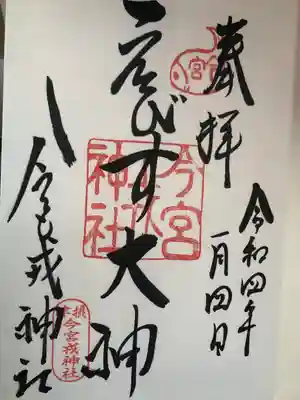 奉拝
令和四年
一月四日
ゑびす大神
今宮戎神社
今宮
戎
神社
摂津
今宮戎神社